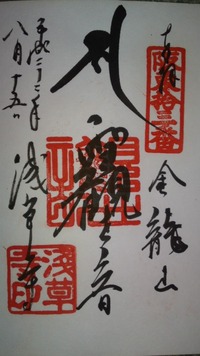 奉拝
坂東拾三番
金龍山
聖観世音
浅草寺
平成二十二年
八月十五日
浅草寺印